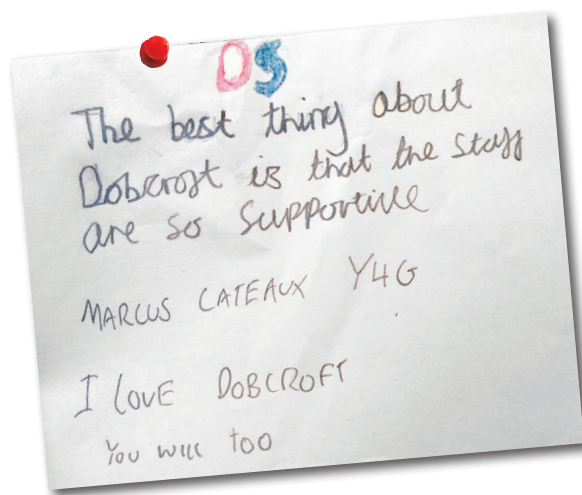 DS
The best thing about
Dobcroft is that the staff
are so supportive
MARCUS CATEAUX Y4G
I LOVE DOBCROFT
YOU WILL TOO